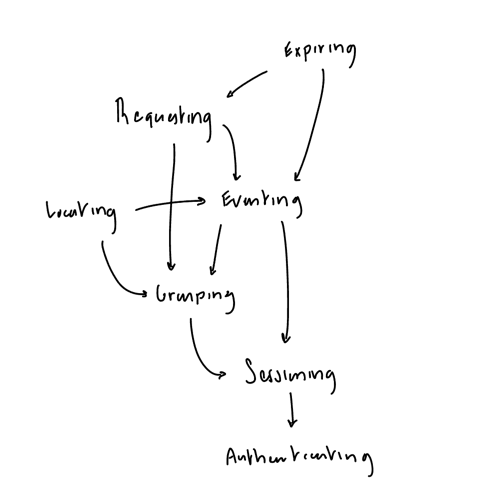 Expiring
Requesting
Eventing
Locating
Grouping
Sessioning
Authenticating